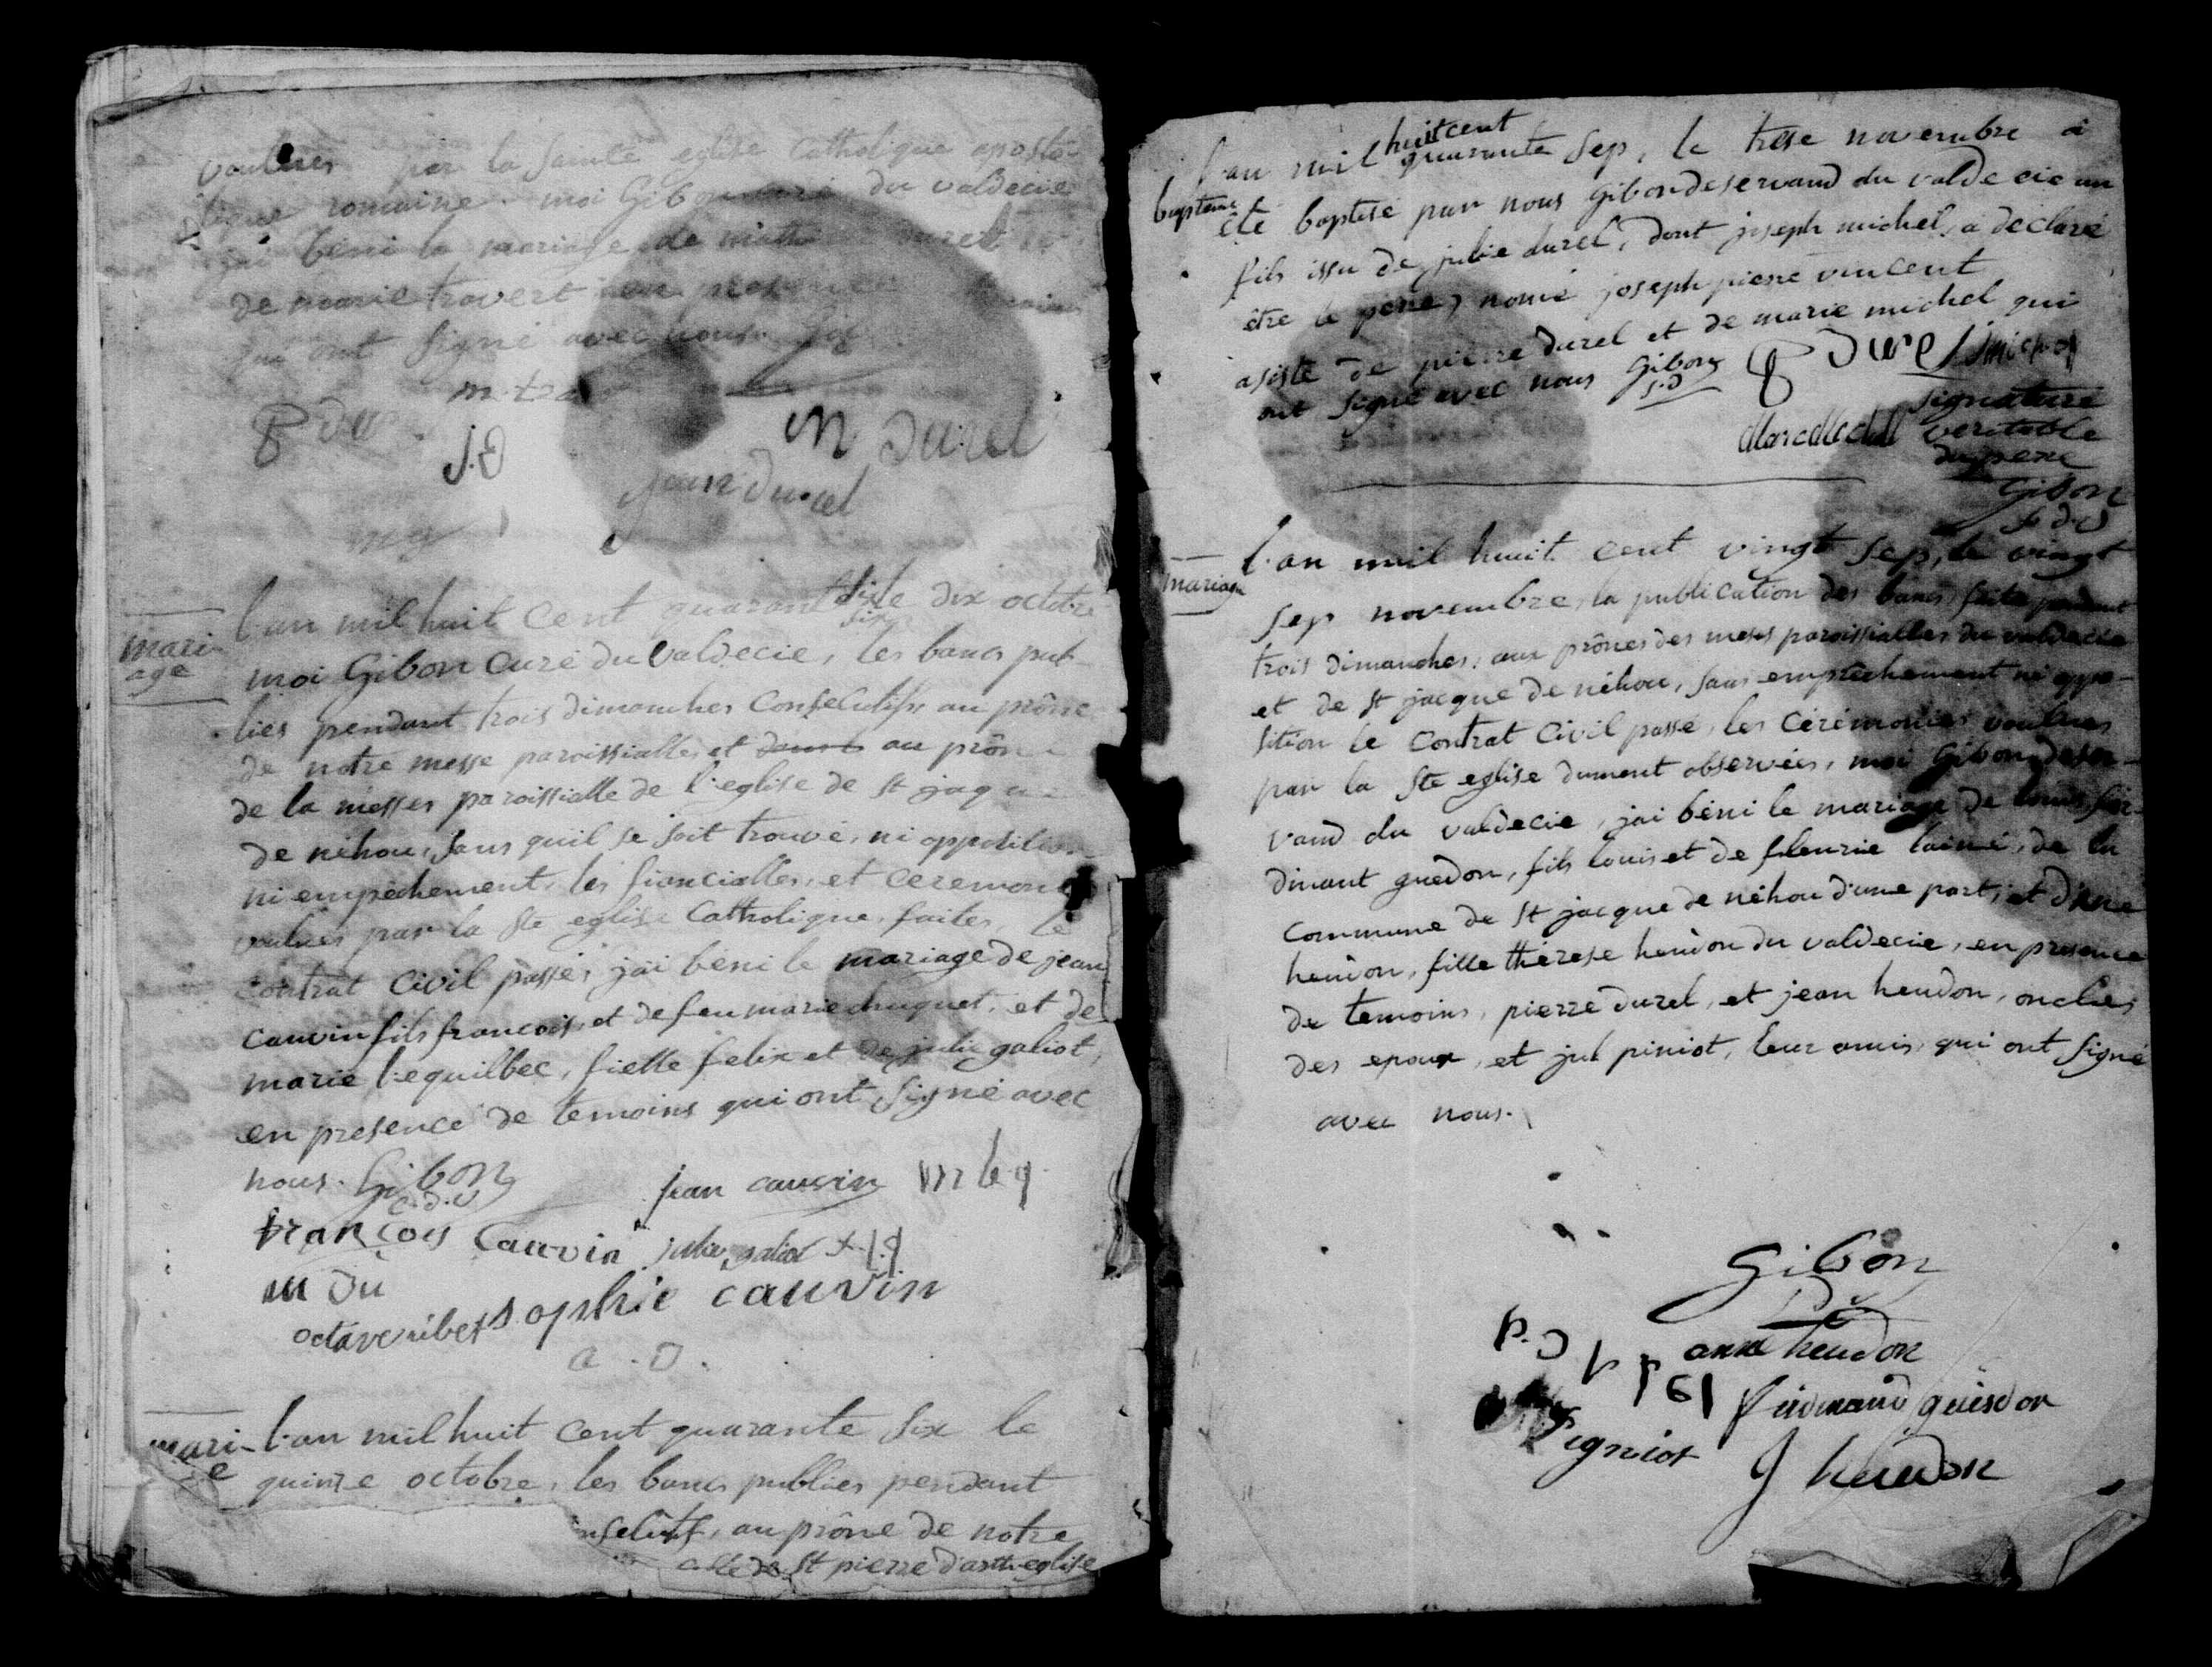 voulues par la Sainte eglise Catholique aposto-
lique romaine. moi Gibon curé du valdecie
j'ai béni le mariage de
de marie travert en presence
qui ont Signé avec nous.
m. t
P du
J. D
M Durel
jean Durel
mari-
age
l'an mil huit cent quarante Six le dix octobre
moi Gibon Curé du Valdecie, les bancs pub-
liés pendant trois dimanches Conseclutifs au prône
de notre messe paroissialle, et au prône
de la messes paroissialle de l'eglise de st jaque
de néhou, Sans quil se soit trouvé, ni opposition
ni empêchement, les fiancialles, et ceremonies
voulues par la Ste eglise Catholique, faites, le
contrat Civil passé, jai béni le mariage de jean
cauvin fils francois, et de feu marie duquet, et de
marie l'equilbec, fielle felix et de julie galiot,
en presence de temoins qui ont Signé avec
nous. Gibon
c.d.v
jean cauvin m l q
francois Cauvin julie galiot
m Du
octave ribet Sophie cauvin
a . D .
mari-
e
l'an mil huit cent quarante Six le
quinze octobre, les bancs publiés pendant
nseclutifs, au prône de notre
St pierre d'artheglise
l'an mil huit cent quarante Sep, le trese novembre à
bapteme
été baptisé par nous Gibon deservand du valde cie un
fils issu de julie durel, dont joseph michel, a déclaré
être le pere, nomé joseph pierre vincent
asisté de pierre durel et de marie michel qui
ont Signé avec nous Gibon
s.D
P Durel J michel
Signature
veritable
du pere
Gibon
d.v
mariage
l'an mil huit cent vingt Sep, le vingt
Sep novembre, la publication des bancs, faite pendant
trois dimanches, aux prônes des meses paroissialles du valdecie
et de St jacque de néhou, Sans empêchement ni oppo-
sition le Contrat Civil passé, les Cérémonies voulues
par la Ste eglise dument observées, moi Gibon deser-
vand du valdecie, jai béni le mariage de louis fer-
dinant guédon, fils louis et de fleurie lainé, de la
commune de St jacque de néhou d'une part, et d'anne
heudon, fille thérese heudon du valdecie, en presence
de temoins, pierre durel, et jean heudon, oncles
des epoux, et jul piniot, leur amis, qui ont Signé
avec nous.
Gibon
P. D
anne heudon
ferdinand guesdon
Pigniot
J heudon